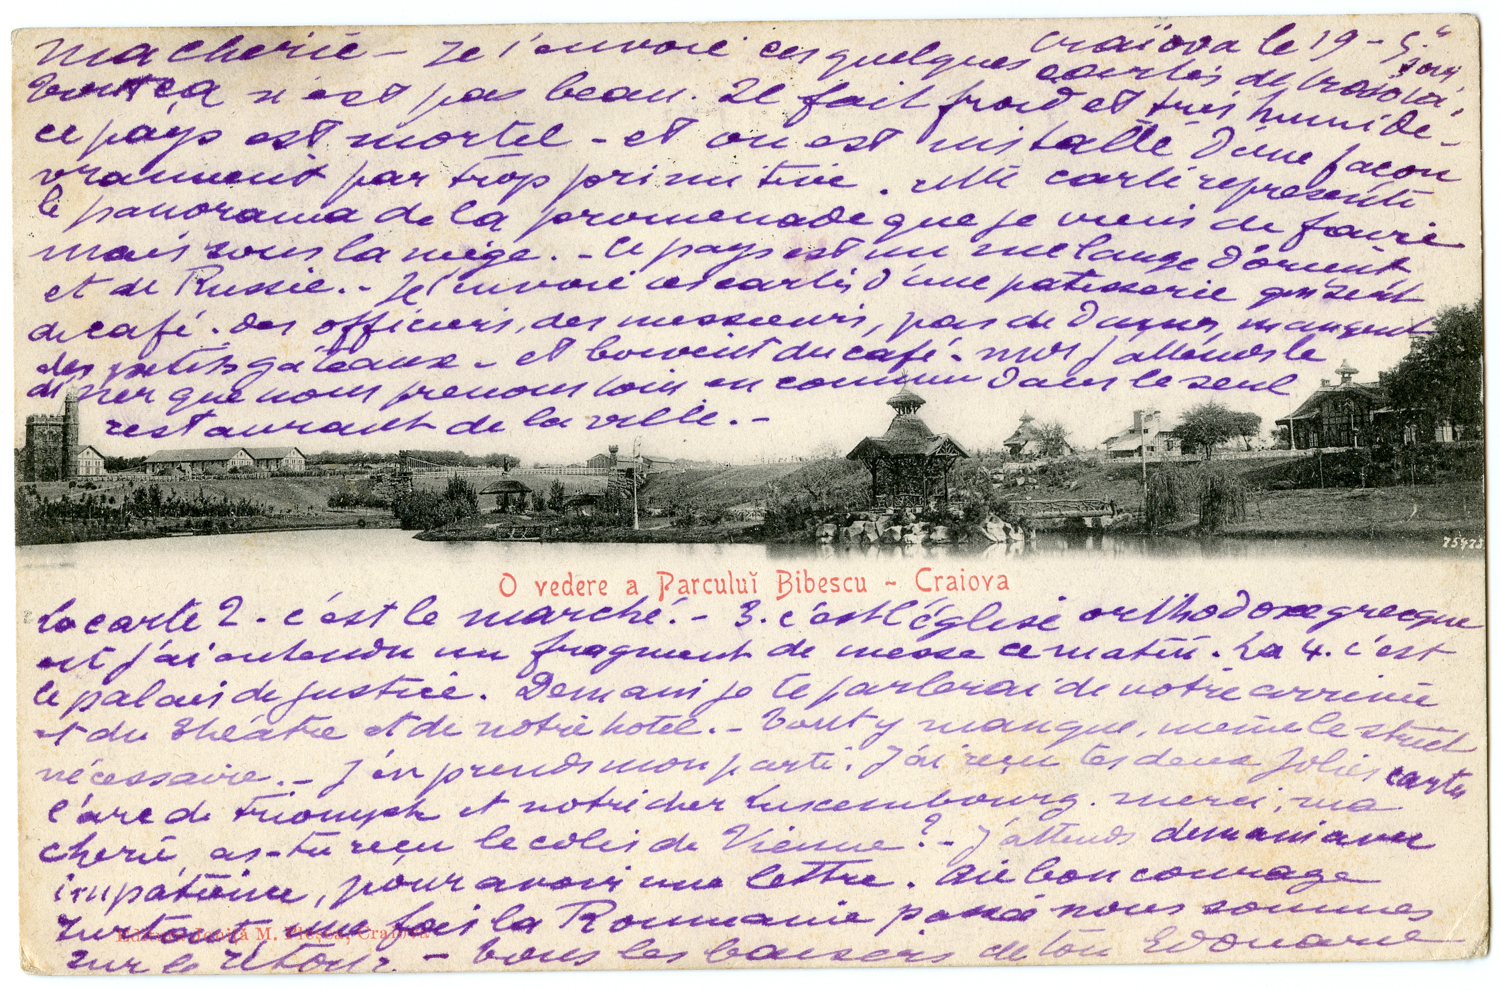 Craïova le 19 - 5."
soir
Ma cherie - Je t'envoie ces quelques cartes de Craiova.
Tout ça n'est pas beau. Il fait froid et très humide -
ce pays est mortel - et on est installé d'une façon
vraiment par trop primitive. Ma carte représente
le panorama de la promenade que je viens de faire
mais sous la neige. - Ce pays est un mélange d'orient
et de Russie. - Je t'envoie ces cartes d'une patisserie qui sert
de café. des officiers, des messieurs, pas de dames, mangent
des petits gâteaux - et boivent du café - moi j'attends le
diner que nous prenons loin en commun dans le seul
restaurant de la ville. -
75475
O vedere a Parculuĭ Bibescu - Craiova
La carte 2 - c'est le marché. - 3. c'est l'église orthodoxe grecque
où j'ai entendu un fragment de messe ce matin. La 4. c'est
le palais de justice. Demain je te parlerai de notre arrivée
et du théâtre et de notre hotel. - Tout y manque, même le strict
nécessaire. - J'en prends mon parti. J'ai reçu tes deux jolies cartes
l'arc de Triomphe et notre cher Luxembourg. merci, ma
cherie, as-tu reçu le colis de Vienne? - J'attends demain avec
impatience, pour avoir une lettre. Aie bon courage
surtout une fois la Roumanie passée nous sommes
Craiova
sur le retour. - Tous les baisers de ton Edouard